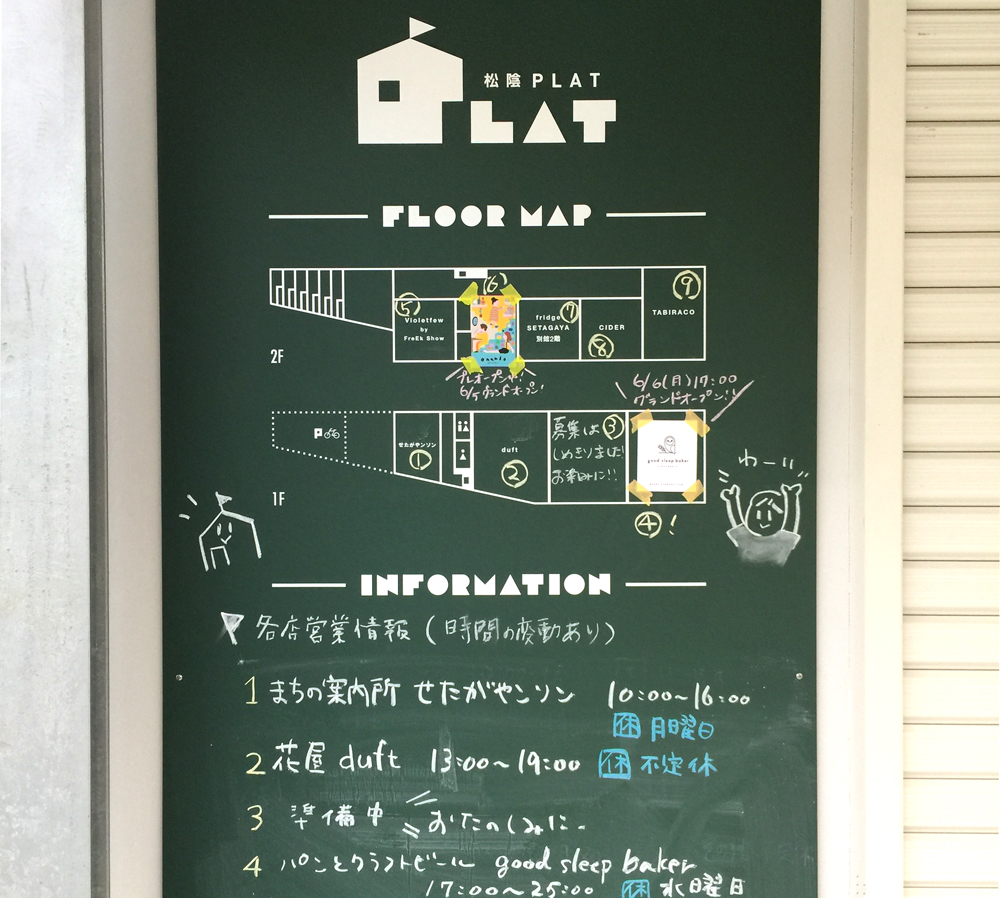 松陰 PLAT
PLAT
FLOOR MAP
⑤
Violetfew
by
FreEk Show
⑥
fridge ⑦
SETAGAYA
別館2階
CIDER
⑧
⑨
TABIRACO
2F
プレオープン中!
6/5グランドオープン!
6/6(月)17:00
グランドオープン!!
P
せたがヤンソン
①
duft
②
募集は③
しめきりました!
お楽しみに!!
good sleep baker
④!
1F
わーい
INFORMATION
各店営業情報(時間の変動あり)
1 まちの案内所 せたがヤンソン 10:00~16:00
休 月曜日
2 花屋 duft 13:00~19:00 休 不定休
3 準備中 おたのしみに~
4 パンとクラフトビール good sleep baker
17:00~25:00 休 水曜日